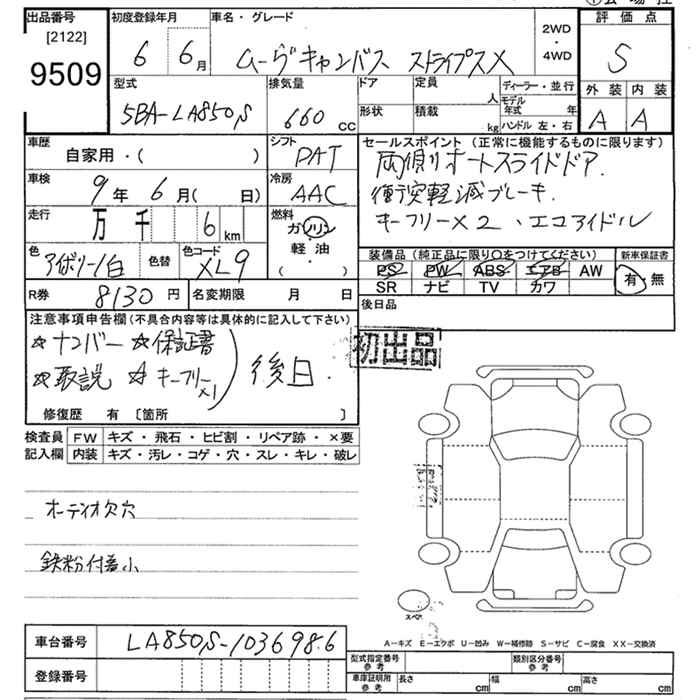 出品番号 [2122] 9509
初度登録年月 6 6月
車名・グレード ムーヴキャンバス ストライプスX
2WD・4WD
評価点 S
外装 A 内装 A
型式 5BA-LA850S
排気量 660 CC
ドア 形状
定員 人
積載 kg
ディーラー・並行
モデル年式 年
ハンドル 左・右
車歴 自家用・( )
シフト DAT
車検 9年6月( 日)
冷房 AAC
走行 万 千 6 km
燃料 ガソリン 軽・油 ( ・ )
色 アイボリー/白
色替
色コード XL9
R券 8130円
名変期限 月 日
セールスポイント (正常に機能するものに限ります)
両側オートスライドドア.
衝突軽減ブレーキ.
キーフリー×2、エコアイドル
装備品(純正品に限り〇をつけてください)
PS PW ABS エアB AW
SR ナビ TV カワ
新車保証書 有・無
後日品
注意事項申告欄(不具合内容等は具体的に記入して下さい)
☆ナンバー ☆保証書
☆取説 ☆キーフリー×1 ) 後日.
修復歴 有 〔箇所 〕
初出品
検査員記入欄
FW キズ・飛石・ヒビ割・リペア跡・×要
内装 キズ・汚レ・コゲ・穴・スレ・キレ・破レ
オーディオ欠穴
鉄粉付着小
スペア
A-キズ E-エクボ U-凹み W-補修跡 S-サビ C-腐食 XX-交換済
車台番号 LA850S-1036986
登録番号
型式指定番号 参考
類別区分番号 参考
車庫証明用 参考 長さ cm 幅 cm 高さ cm